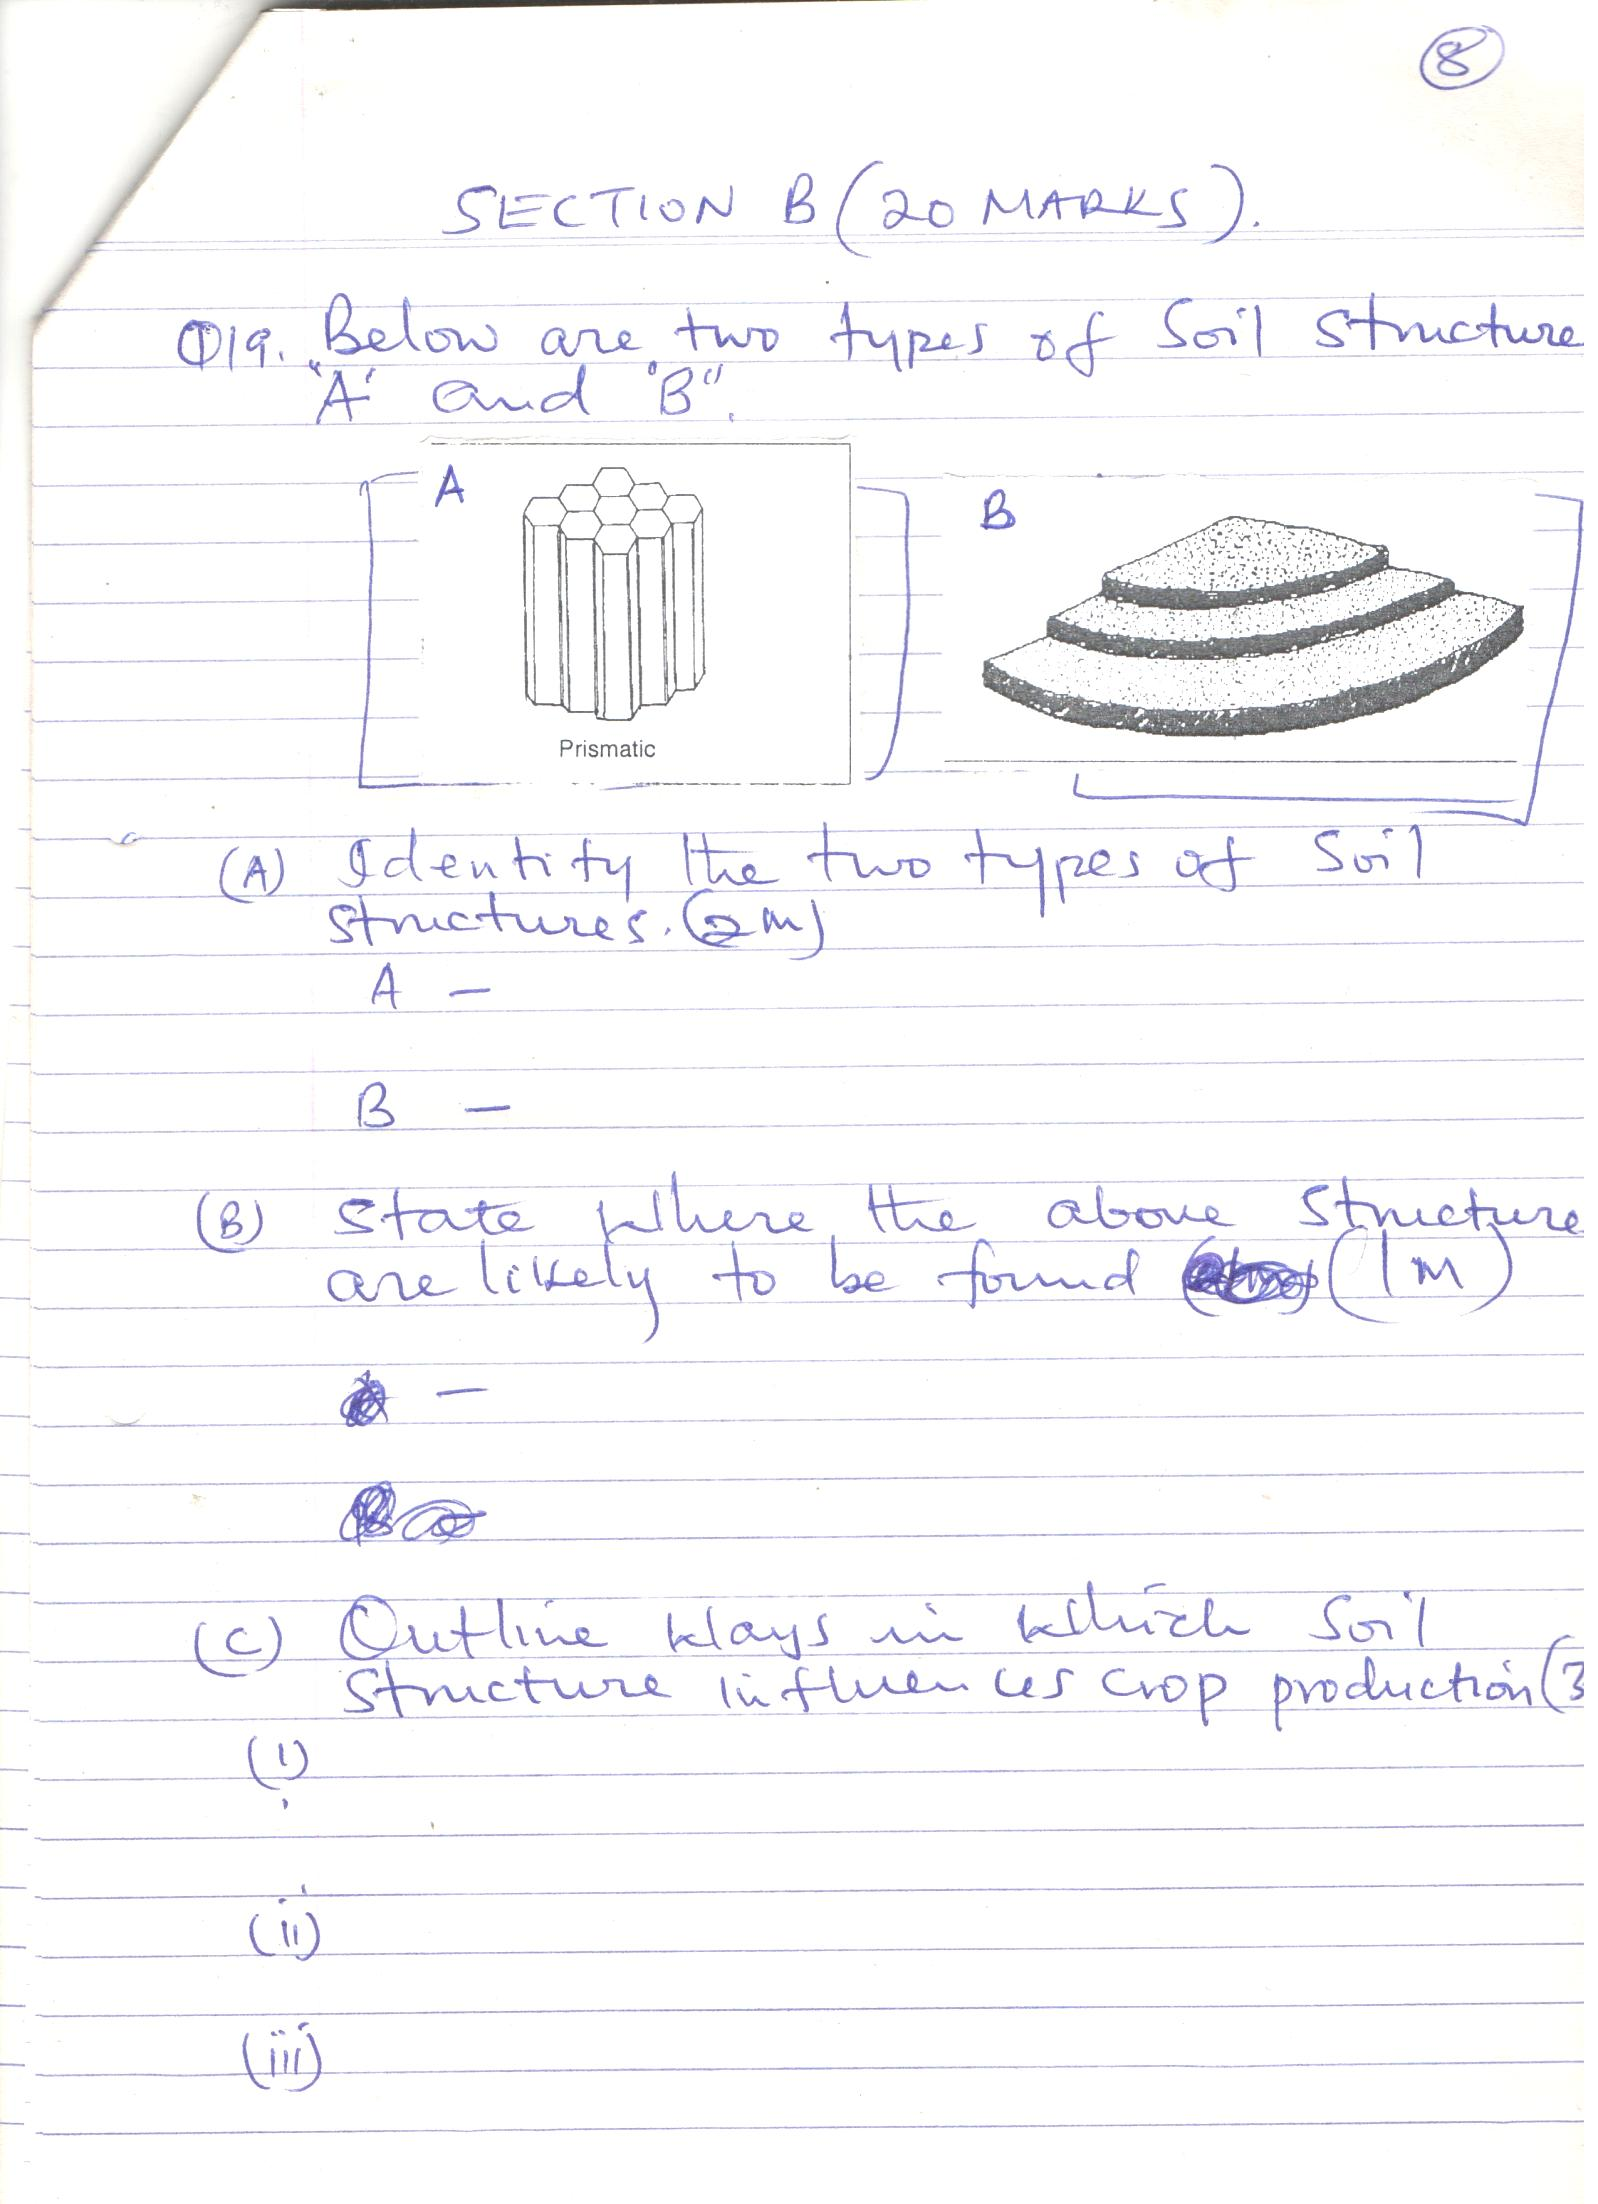 8
SECTION B (20 MARKS).
Q19. Below are two types of Soil Structure
"A' and "B".
A
B
Prismatic
(A) Identify the two types of Soil
structures. (2m)
A -
B -
(B) State Where the above Structure
are likely to be found (1M)
-
(C) Outline Ways in Which Soil
Structure influences crop production (3
(i)
(ii)
(iii)